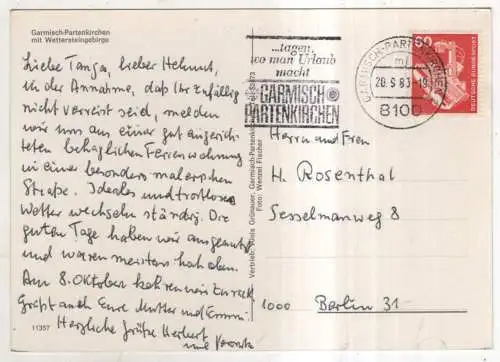 Garmisch-Partenkirchen
mit Wettersteingebirge
Liebe Tanja, lieber Helmut,
in der Annahme, daß Ihr zufällig
nicht verreist seid, melden
wir uns aus einer gut angerich-
teten behaglichen Ferienwohnung
in einer besonders malerischen
Straße. Ideales und trostloses
Wetter wechseln ständig. Die
guten Tage haben wir ausgenutzt
und waren meistens hoch oben.
Am 8. Oktober kehren wir zurück.
Grüßt auch Eure Mutter und
Herzliche Grüße Herbert
und
11357
Foto: Wenzel Fischer
...tagen,
wo man Urlaub
macht
GARMISCH
PARTENKIRCHEN
GARMISCH-PARTENKIRCHEN 1
20.9.83-19
8100
60
DEUTSCHE BUNDESPOST
Herrn und Frau
H. Rosenthal
Sesselmannweg 8
1000 Berlin 31